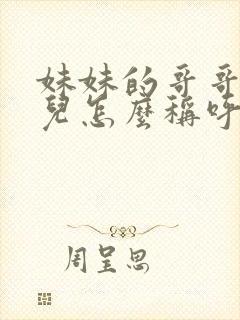 妹妹的哥哥
兒怎麼稱呼
周呈思